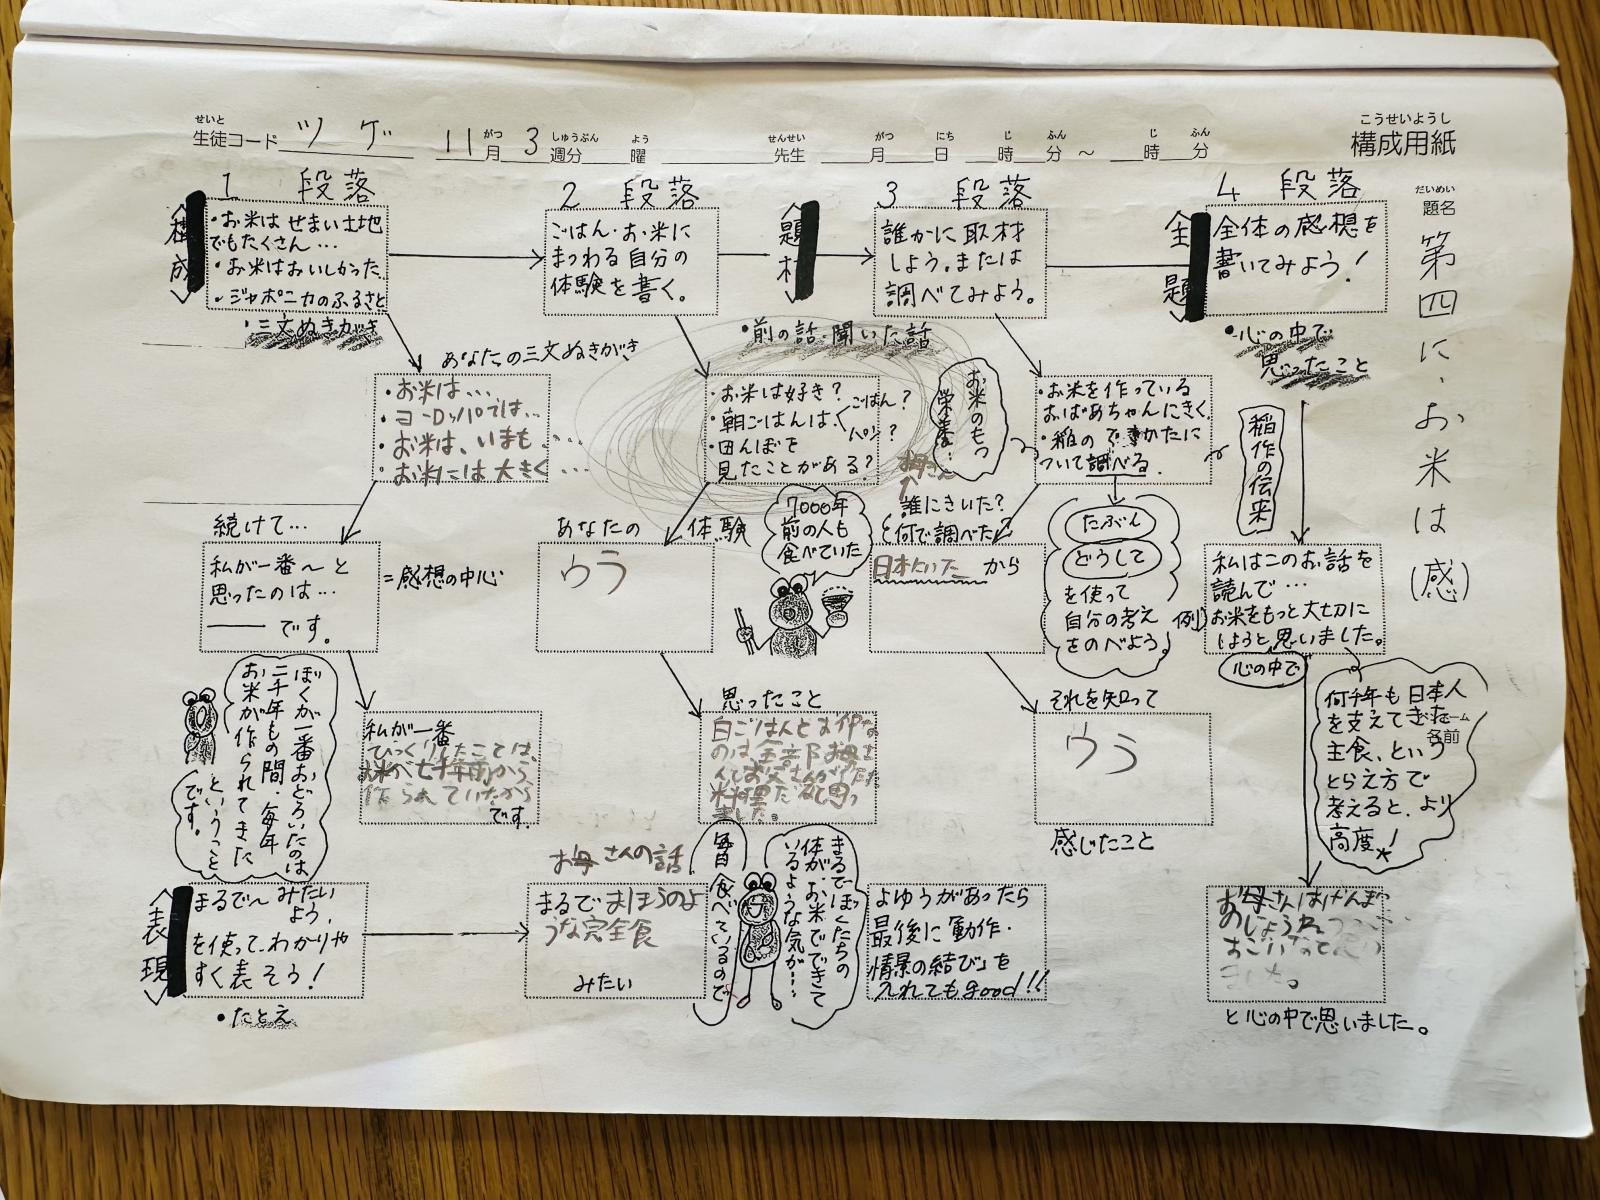 せいと
生徒コード ツゲ 11月3週分 曜 先生 月 日 時 分 ～ 時 分
がつ しゅうぶん よう せんせい がつ にち じ ふん じ ふん
こうせいようし
構成用紙
だいめい
題名
第四に、お米は(感)
ネーム
名前
1 段落
〈構成〉
・お米は せまい土地
でもたくさん…
・お米はおいしかった
・ジャポニカのふるさと
・三文ぬきがき
あなたの三文ぬきがき
・お米は…
・ヨーロッパでは…
・お米は、いまも…
・お米には大きく…
続けて…
私が一番～と
思ったのは…
── です。
=感想の中心
私が一番
びっくりしたことは、
お米が七千年前から
作られていたから
です。
ぼくが一番おどろいたのは
二千年もの間、毎年
お米が作られてきた
ということ
です。
〈表現〉
まるで～みたい
よう、
を使って、わかりや
すく表そう!
・たとえ
2 段落
ごはん・お米に
まつわる自分の
体験を書く。
・お米は好き?
・朝ごはんは、ごはん? パン?
・田んぼを
見たことがある?
あなたの 体験
ウラ
7000年
前の人も
食べていた
思ったこと
お母さんの話
まるで まほうのよ
うな完全食
みたい
毎日
食べているので
まるでぼくたちの
体が、お米でできて
いるような気が…
〈題材〉
・前の話・聞いた話
3 段落
誰かに取材
しよう。または
調べてみよう。
お米のもつ
栄養…
・お米を作っている
おばあちゃんにきく。
・稲のでまかたに
ついて調べる。
お母さん
誰にきいた?
と何で調べた?
から
たぶん
どうして
を使って
自分の考え
をのべよう。
それを知って
ウラ
感じたこと
よゆうがあったら
最後に動作・
情景の結び」を
入れてもgood!!
〈全題〉
4 段落
全体の感想を
書いてみよう!
・心の中で
思ったこと
稲作の伝来
例)
私はこのお話を
読んで…
お米をもっと大切に
しようと思いました。
心の中で
何千年も日本人
を支えてきた
主食、という
とらえ方で
考えると、より
高度!
と心の中で思いました。